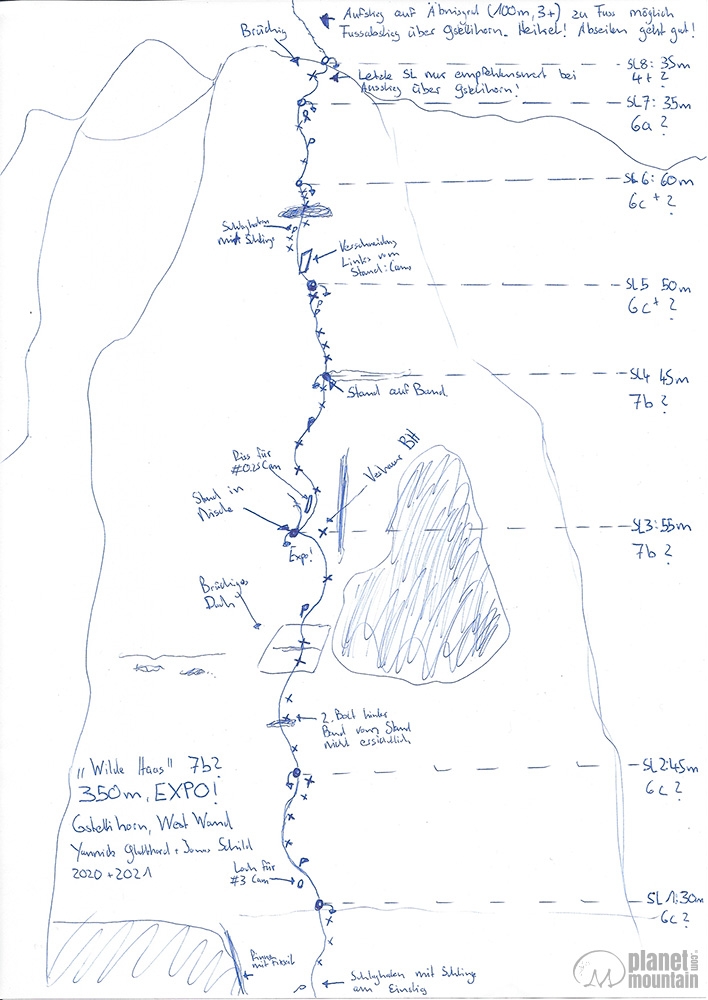 Aufstieg auf Äbnisgrat (100m, 3+) zu Fuss möglich
Fussabstieg über Gstellihorn. Heikel! Abseilen geht gut!
Brüchig
SL8: 35m
4+?
Letzte SL nur empfehlenswert bei
Ausstieg über Gstellihorn!
SL7: 35m
6a?
SL6: 60m
6c+?
Schlaghaken
mit Schlinge
Verschneidung
Links vom
Stand: Cams
SL5 50m
6c+?
SL4 45m
7b?
Stand auf Band
Riss für
#0.25 Cam
Verhauer BH
Stand in
Nische
SL3: 55m
7b?
Expo!
Brüchiges
Dach
2. Bolt hinter
Band vom Stand
nicht ersichtlich
„Wilde Haas" 7b?
350m, EXPO!
Gstellihorn, West Wand
Yannick Glatthard + Jonas Schild
2020 + 2021
SL2: 45m
6c?
Loch für
#3 Cam
SL1: 30m
6c?
mit Fixseil
Schlaghaken mit Schlinge
am Einstieg
planet
mountain
.com